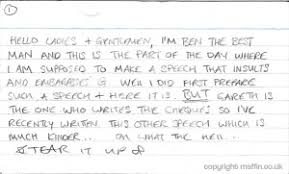 1
HELLO LADIES + GENTLEMEN, I'M BEN THE BEST
MAN AND THIS IS THE PART OF THE DAY WHERE
I AM SUPPOSED TO MAKE A SPEECH THAT INSULTS
AND EMBARASSES G WELL I DID FIRST PREPARE
SUCH A SPEECH + HERE IT IS. BUT GARETH IS
THE ONE WHO WRITES THE CHEQUES SO I'VE
RECENTLY WRITTEN THIS OTHER SPEECH WHICH IS
MUCH KINDER... OH WHAT THE HELL...
TEAR IT UP
copyright maffin.co.uk